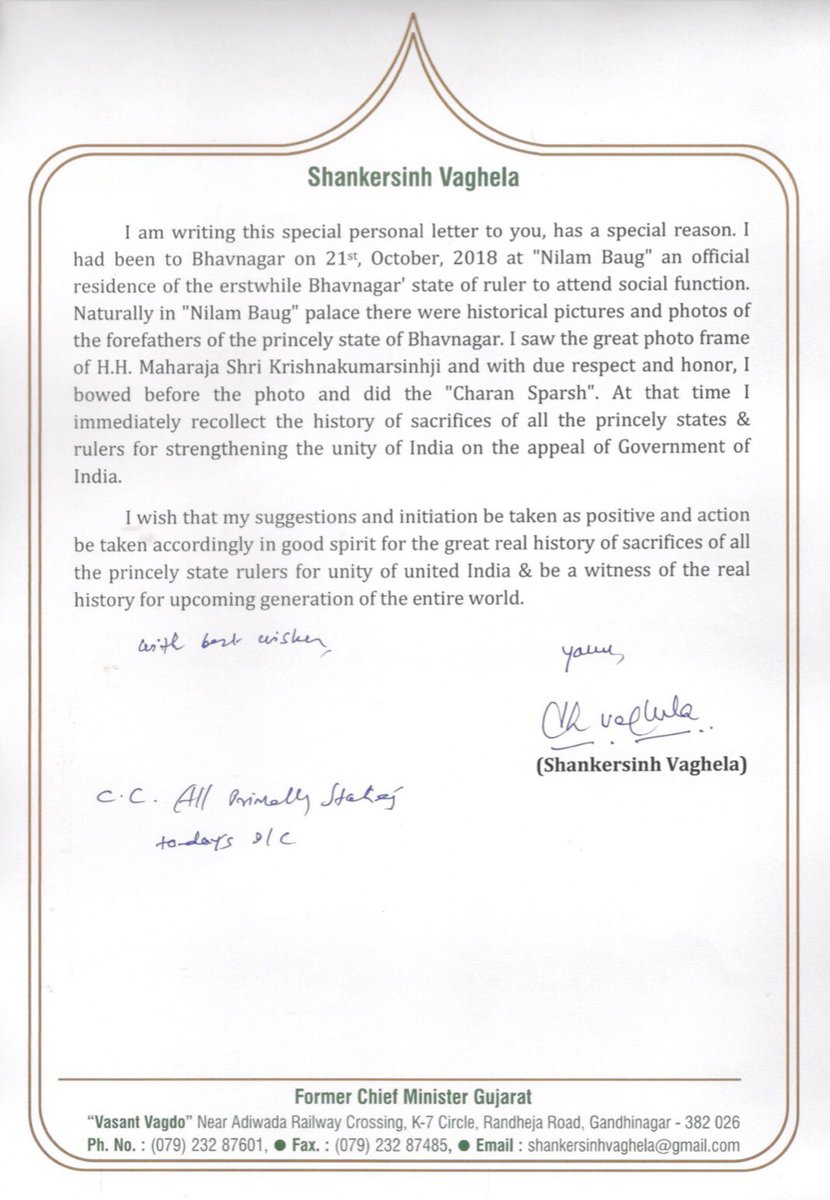 Shankersinh Vaghela
I am writing this special personal letter to you, has a special reason. I
had been to Bhavnagar on 21st, October, 2018 at "Nilam Baug" an official
residence of the erstwhile Bhavnagar' state of ruler to attend social function.
Naturally in "Nilam Baug" palace there were historical pictures and photos of
the forefathers of the princely state of Bhavnagar. I saw the great photo frame
of H.H. Maharaja Shri Krishnakumarsinhji and with due respect and honor, I
bowed before the photo and did the "Charan Sparsh". At that time I
immediately recollect the history of sacrifices of all the princely states &
rulers for strengthening the unity of India on the appeal of Government of
India.
I wish that my suggestions and initiation be taken as positive and action
be taken accordingly in good spirit for the great real history of sacrifices of all
the princely state rulers for unity of united India & be a witness of the real
history for upcoming generation of the entire world.
with best wishes,
yours,
vaghela
(Shankersinh Vaghela)
C.C. All Princely States
to-days
Former Chief Minister Gujarat
“Vasant Vagdo” Near Adiwada Railway Crossing, K-7 Circle, Randheja Road, Gandhinagar - 382 026
Ph. No. : (079) 232 87601, ● Fax. : (079) 232 87485, ● Email : shankersinhvaghela@gmail.com